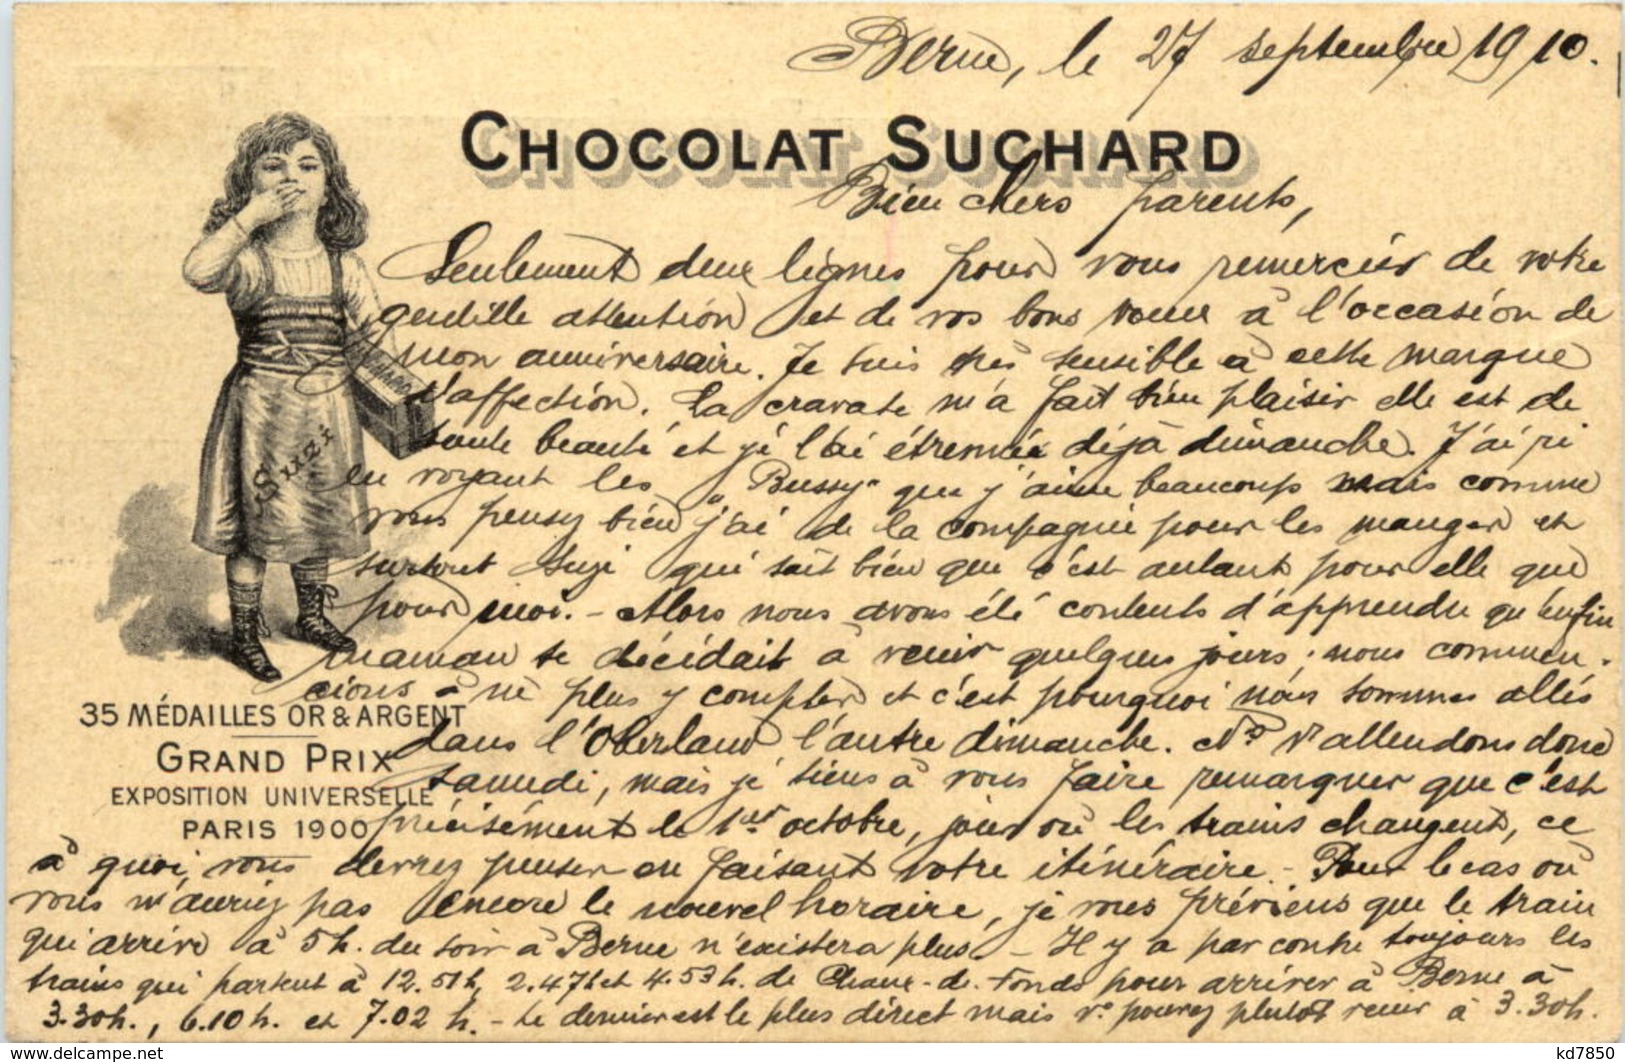 Berne, le 27 septembre 1910.
CHOCOLAT SUCHARD
Bien chers parents,
Seulement deux lignes pour vous remercier de votre
gentille attention et de vos bons vœux à l'occasion de
mon anniversaire. Je suis très sensible à cette marque
d'affection. La cravate m'a fait bien plaisir elle est de
toute beauté et je l'ai étrennée déjà dimanche. J'ai ri
en voyant les "Bussy" que j'aime beaucoup mais comme
vous pensez bien j'ai de la compagnie pour les manger et
surtout Suzi qui sait bien que c'est autant pour elle que
pour moi. - Alors nous avons été contents d'apprendre qu'enfin
maman se décidait à venir quelques jours; nous commen-
cions à ne plus y compter et c'est pourquoi nous sommes allés
dans l'Oberland l'autre dimanche. Ns t'attendons donc
samedi, mais je tiens à vous faire remarquer que c'est
précisément le 1er octobre, jour où les trains changent, ce
à quoi, vous devrez penser en faisant votre itinéraire. - Pour le cas où
vous n'auriez pas encore le nouvel horaire, je vous préviens que le train
qui arrive à 5h. du soir à Berne n'existera plus. - Il y a par contre toujours les
trains qui partent à 12.51h, 2.47h et 4.53h. de Chaux-de-Fonds pour arriver à Berne à
3.30h., 6.10h. et 7.02 h. - Le dernier est le plus direct mais v. pouvez plutôt venir à 3.30h.
Suzi
SUCHARD
35 MÉDAILLES OR & ARGENT
GRAND PRIX
EXPOSITION UNIVERSELLE
PARIS 1900
https://www.delcampe.net
kd7850